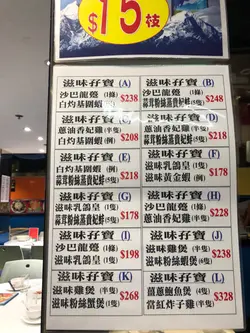 $15枝
滋味孖寶 (A)
沙巴龍躉 (1條)
白灼基圍蝦 $238
滋味孖寶 (B)
沙巴龍躉 (1條)
蒜茸粉絲蒸貴妃蚌 $248
滋味孖寶 (C)
蔥油香妃雞 (半隻)
白灼基圍蝦 $208
滋味孖寶 (D)
蔥油香妃雞 (半隻)
蒜茸粉絲蒸貴妃蚌 $218
滋味孖寶 (E)
蒜茸粉絲蒸貴妃蚌 $218
滋味孖寶 (F)
滋味乳鴿皇 (1隻)
滋味黃金蝦 (例) $178
滋味孖寶 (G)
滋味乳鴿皇 (1隻)
滋味粉絲蝦 (5隻) $178
滋味孖寶 (H)
沙巴龍躉 (1條)
蔥油香妃雞 (半隻) $228
滋味孖寶 (I)
沙巴龍躉 (1條)
滋味乳鴿皇 (1隻) $198
滋味孖寶 (J)
滋味雞煲 (半隻)
滋味粉絲蝦煲 (5隻) $238
滋味孖寶 (K)
滋味雞煲 (半隻)
滋味粉絲蟹煲 (2隻) $268
滋味孖寶 (L)
當紅炸子雞 (半隻) $328